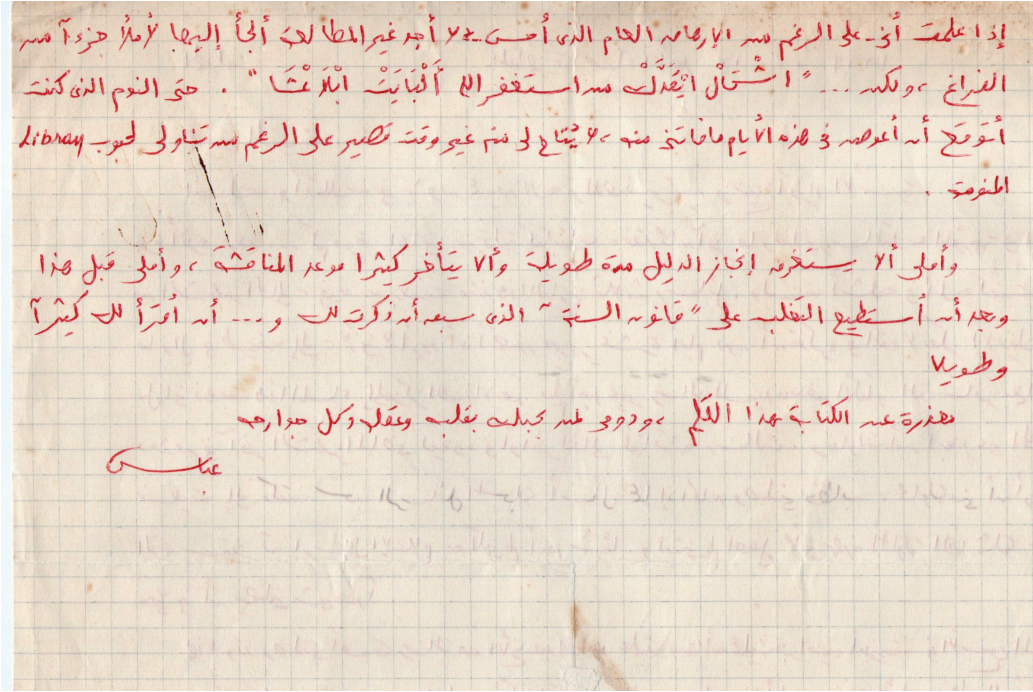 إذا علمت أنى على الرغم من الإرهاق العام الذى أحس به لا أجد غير المطالعة ألجأ إليها لأملأ جزءآ من
الفراغ ، ولكن ... " اشْحَالْ ايْقَدَّكْ من استغفر الله أَلْبَايَتْ ابْلَا عْشَا " . حتى النوم الذى كنت
أتوقع أن أعوض فى هذه الأيام ما فاتنى منه ، لا يُتاح لى منه غير وقت قصير على الرغم من تناولى لحبوب
المنومة .
وأملى ألا يستغرق إنجاز الدليل مدة طويلة وألا يتأخر كثيرا موعد المناقشة ، وأملى قبل هذا
وبعد أن أستطيع التغلب على " قانون السنة " الذى سبق أن ذكرت لك و ... أن أقرأ لك كثيرآ
وطويلا
معذرة عن الكتابة بهذا القلم ، ودومى لمن يحبك بقلبه وعقله وكل جوارحه
عباس